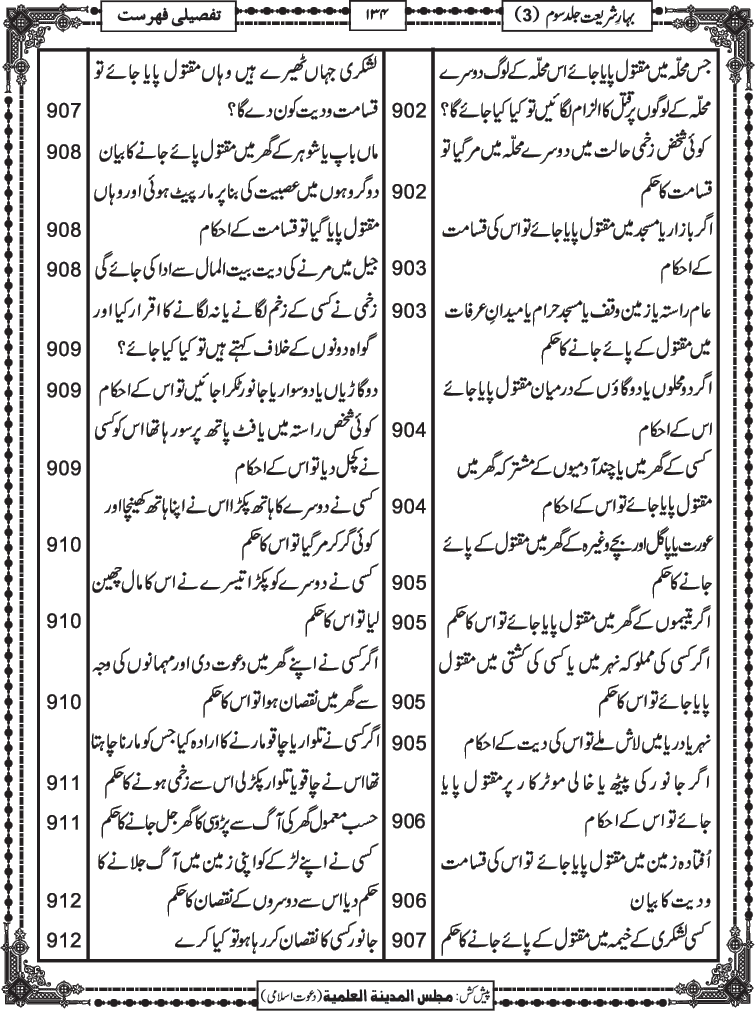 بہارِ شریعت جلد سوم (3)
۱۳۴
تفصیلی فہرست
جس محلّہ میں مقتول پایا جائے اس محلّہ کے لوگ دوسرے
محلّہ کے لوگوں پر قتل کا الزام لگائیں تو کیا کیا جائے گا؟ 902
کوئی شخص زخمی حالت میں دوسرے محلّہ میں مر گیا تو
قسامت کا حکم 902
اگر بازار یا مسجد میں مقتول پایا جائے تو اس کی قسامت
کے احکام 903
عام راستہ یا زمین وقف یا مسجد حرام یا میدانِ عرفات 903
میں مقتول کے پائے جانے کا حکم
اگر دو محلوں یا دو گاؤں کے درمیان مقتول پایا جائے
اس کے احکام 904
کسی کے گھر میں یا چند آدمیوں کے مشترکہ گھر میں
مقتول پایا جائے تو اس کے احکام 904
عورت یا پاگل اور بچے وغیرہ کے گھر میں مقتول کے پائے
جانے کا حکم 905
اگر یتیموں کے گھر میں مقتول پایا جائے تو اس کا حکم 905
اگر کسی کی مملوکہ نہر میں یا کسی کی کشتی میں مقتول
پایا جائے تو اس کا حکم 905
نہر یا دریا میں لاش ملے تو اس کی دیت کے احکام 905
اگر جانور کی پیٹھ یا خالی موٹر کار پر مقتول پایا
جائے تو اس کے احکام 906
اُفتادہ زمین میں مقتول پایا جائے تو اس کی قسامت
و دیت کا بیان 906
کسی لشکری کے خیمہ میں مقتول کے پائے جانے کا حکم 907
لشکری جہاں ٹھیرے ہیں وہاں مقتول پایا جائے تو
قسامت و دیت کون دے گا؟ 907
ماں باپ یا شوہر کے گھر میں مقتول پائے جانے کا بیان 908
دو گروہوں میں عصبیت کی بنا پر مار پیٹ ہوئی اور وہاں
مقتول پایا گیا تو قسامت کے احکام 908
جیل میں مرنے کی دیت بیت المال سے ادا کی جائے گی 908
زخمی نے کسی کے زخم لگانے یا نہ لگانے کا اقرار کیا اور
گواہ دونوں کے خلاف کہتے ہیں تو کیا کیا جائے؟ 909
دو گاڑیاں یا دو سوار یا جانور ٹکرا جائیں تو اس کے احکام 909
کوئی شخص راستہ میں یا فٹ پاتھ پر سو رہا تھا اس کو کسی
نے کچل دیا تو اس کے احکام 909
کسی نے دوسرے کا ہاتھ پکڑا اس نے اپنا ہاتھ کھینچا اور
کوئی گر کر مر گیا تو اس کا حکم 910
کسی نے دوسرے کو پکڑا تیسرے نے اس کا مال چھین
لیا تو اس کا حکم 910
اگر کسی نے اپنے گھر میں دعوت دی اور مہمانوں کی وجہ
سے گھر میں نقصان ہوا تو اس کا حکم 910
اگر کسی نے تلوار یا چاقو مارنے کا ارادہ کیا جس کو مارنا چاہتا
تھا اس نے چاقو یا تلوار پکڑ لی اس سے زخمی ہونے کا حکم 911
حسب معمول گھر کی آگ سے پڑوسی کا گھر جل جانے کا حکم 911
کسی نے اپنے لڑکے کو اپنی زمین میں آگ جلانے کا
حکم دیا اس سے دوسروں کے نقصان کا حکم 912
جانور کسی کا نقصان کر رہا ہو تو کیا کرے 912
پیش کش: مجلس المدینة العلمیة (دعوت اسلامی)